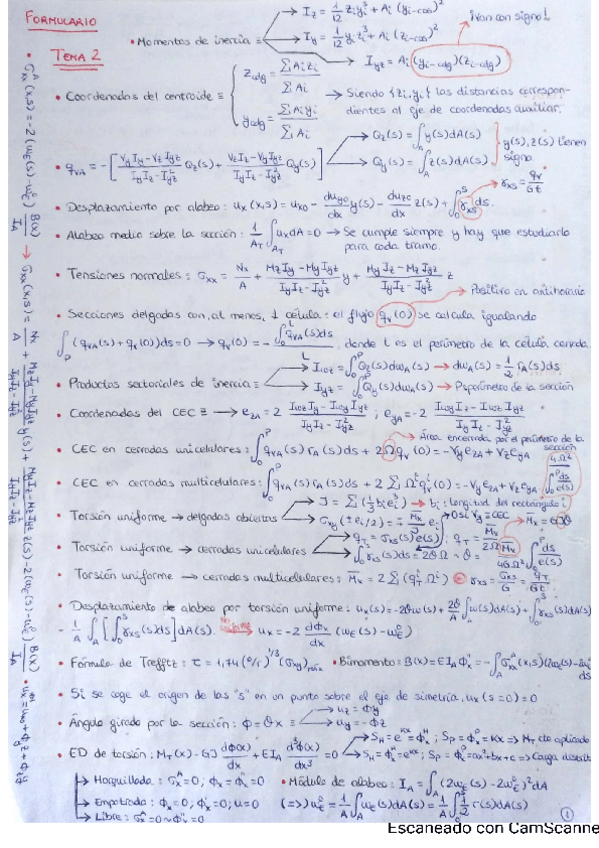 FORMULARIO
TEMA 2
• Momentos de inercia ≡ → I_z = 1/12 z_i y_i³ + A_i (y_i-cdg)²
→ I_y = 1/12 y_i z_i³ + A_i (z_i-cdg)²
→ I_yz = A_i (y_i-cdg)(z_i-cdg)
¡Van con signo!
• Coordenadas del centroide ≡ { z_cdg = ΣA_i z_i / ΣA_i
y_cdg = ΣA_i y_i / ΣA_i
→ Siendo {z_i, y_i} las distancias correspon-
dientes al eje de coordenadas auxiliar.
• q_vA = -[ (V_y I_y - V_z I_yz)/(I_y I_z - I_yz²) Q_z(s) + (V_z I_z - V_y I_yz)/(I_y I_z - I_yz²) Q_y(s) ]
→ Q_z(s) = ∫_A y(s)dA(s)
→ Q_y(s) = ∫_A z(s)dA(s)
} y(s), z(s) tienen
signo
• Desplazamiento por alabeo: u_x(x,s) = u_x0 - du_y0/dx y(s) - du_z0/dx z(s) + ∫_0^s γ_xs ds. → γ_xs = q_v/Gt
• Alabeo medio sobre la sección: 1/A_T ∫_A_T u_x dA = 0 → Se cumple siempre y hay que estudiarlo
para cada tramo.
• Tensiones normales: σ_xx = N_x/A + (M_z I_y - M_y I_yz)/(I_y I_z - I_yz²) y + (M_y I_z - M_z I_yz)/(I_y I_z - I_yz²) z
→ Positivo en antihorario
• Secciones delgadas con, al menos, 1 célula: el flujo q_v(0) se calcula igualando
∫_P (q_vA(s) + q_v(0))ds = 0 → q_v(0) = - ∫_0^L q_vA(s)ds / L, donde L es el perímetro de la célula cerrada.
• Productos sectoriales de inercia ≡ → I_ωz = ∫_0^P Q_z(s)dω_A(s) → dω_A(s) = 1/2 r_A(s)ds
→ I_yω = ∫_0^P Q_y(s)dω_A(s) → P≡perímetro de la sección
• Coordenadas del CEC ≡ → e_zA = 2 (I_ωz I_y - I_ωy I_yz)/(I_y I_z - I_yz²) ; e_yA = -2 (I_ωy I_z - I_ωz I_yz)/(I_y I_z - I_yz²)
→ Área encerrada por el perímetro de la
sección
• CEC en cerradas unicelulares: ∫_0^P q_vA(s) r_A(s)ds + 2Ω q_v(0) = -V_y e_zA + V_z e_yA
• CEC en cerradas multicelulares: ∫_0^P q_vA(s) r_A(s)ds + 2 Σ Ω^i q_v^i(0) = -V_y e_zA + V_z e_yA
4Ω² / ∫_0^P ds/e(s)
• Torsión uniforme → delgadas abiertas → J = Σ(1/3 b_i e_i³) → b_i: longitud del rectángulo i
→ σ_xy(±e_i/2) = ∓ M_x/J e_i
→ M_x = GJθ
• Torsión uniforme → cerradas unicelulares → q_T = σ_xs(s)e(s); q_T = M_x/2Ω
→ ∫_0^P γ_xs(s)ds = 2θΩ → θ = M_x/4GΩ² ∫_0^P ds/e(s)
• Torsión uniforme → cerradas multicelulares: M_x = 2 Σ(q_T^i Ω^i) γ_xs = σ_xs/G = q_T/Gt
• Desplazamiento de alabeo por torsión uniforme: u_x(s) = -2θω(s) + 2θ/A ∫_A ω(s)dA(s) + ∫_0^s γ_xs(s)dA(s)
- 1/A ∫_A [∫_0^s γ_xs(s)ds] dA(s). → u_x = -2 dΦ_x/dx (ω_E(s) - ω_E^0)
• Fórmula de Trefftz: τ = 1,74 (e/r)^1/3 (σ_xy)máx • Bimomento: B(x) = EI_A Φ_x'' = -∫_A σ_xx^A(x,s)(2ω_E(s) - 2ω_E^0) ds
• Si se coge el origen de las "s" en un punto sobre el eje de simetría, u_x(s=0) = 0
• Ángulo girado por la sección: Φ = θx ≡ → u_z = Φy
→ u_y = -Φz
• ED de torsión: M_T(x) - GJ dΦ(x)/dx + EI_A d³Φ(x)/dx³ = 0
→ S_H = e^Kx = Φ_x^H; S_P = Φ_x^P = Kx => M_T cte aplicado
→ S_H = Φ_x^H = e^Kx; S_P = Φ_x^P = ax² + bx + c => Carga distrib
→ Horquillada: σ_x^A = 0; Φ_x = Φ_x'' = 0
→ Empotrada: Φ_x = 0; Φ_x' = 0; u = 0
→ Libre: σ_x^A = 0 ~ Φ_x'' = 0
• Módulo de alabeo: I_A = ∫_A (2ω_E(s) - 2ω_E^0)² dA
(=>) ω_E^0 = 1/A ∫_A ω_E(s)dA(s) = 1/A ∫_A ∫_0^s 1/2 r(s)dA(s)
1
• σ_xx^A(x,s) = -2(ω_E(s) - ω_E^0) B(x)/I_A → σ_xx(x,s) = N_x/A + (M_z I_y - M_y I_yz)/(I_y I_z - I_yz²) y(s) + (M_y I_z - M_z I_yz)/(I_y I_z - I_yz²) z(s) - 2(ω_E(s) - ω_E^0) B(x)/I_A
Escaneado con CamScanne